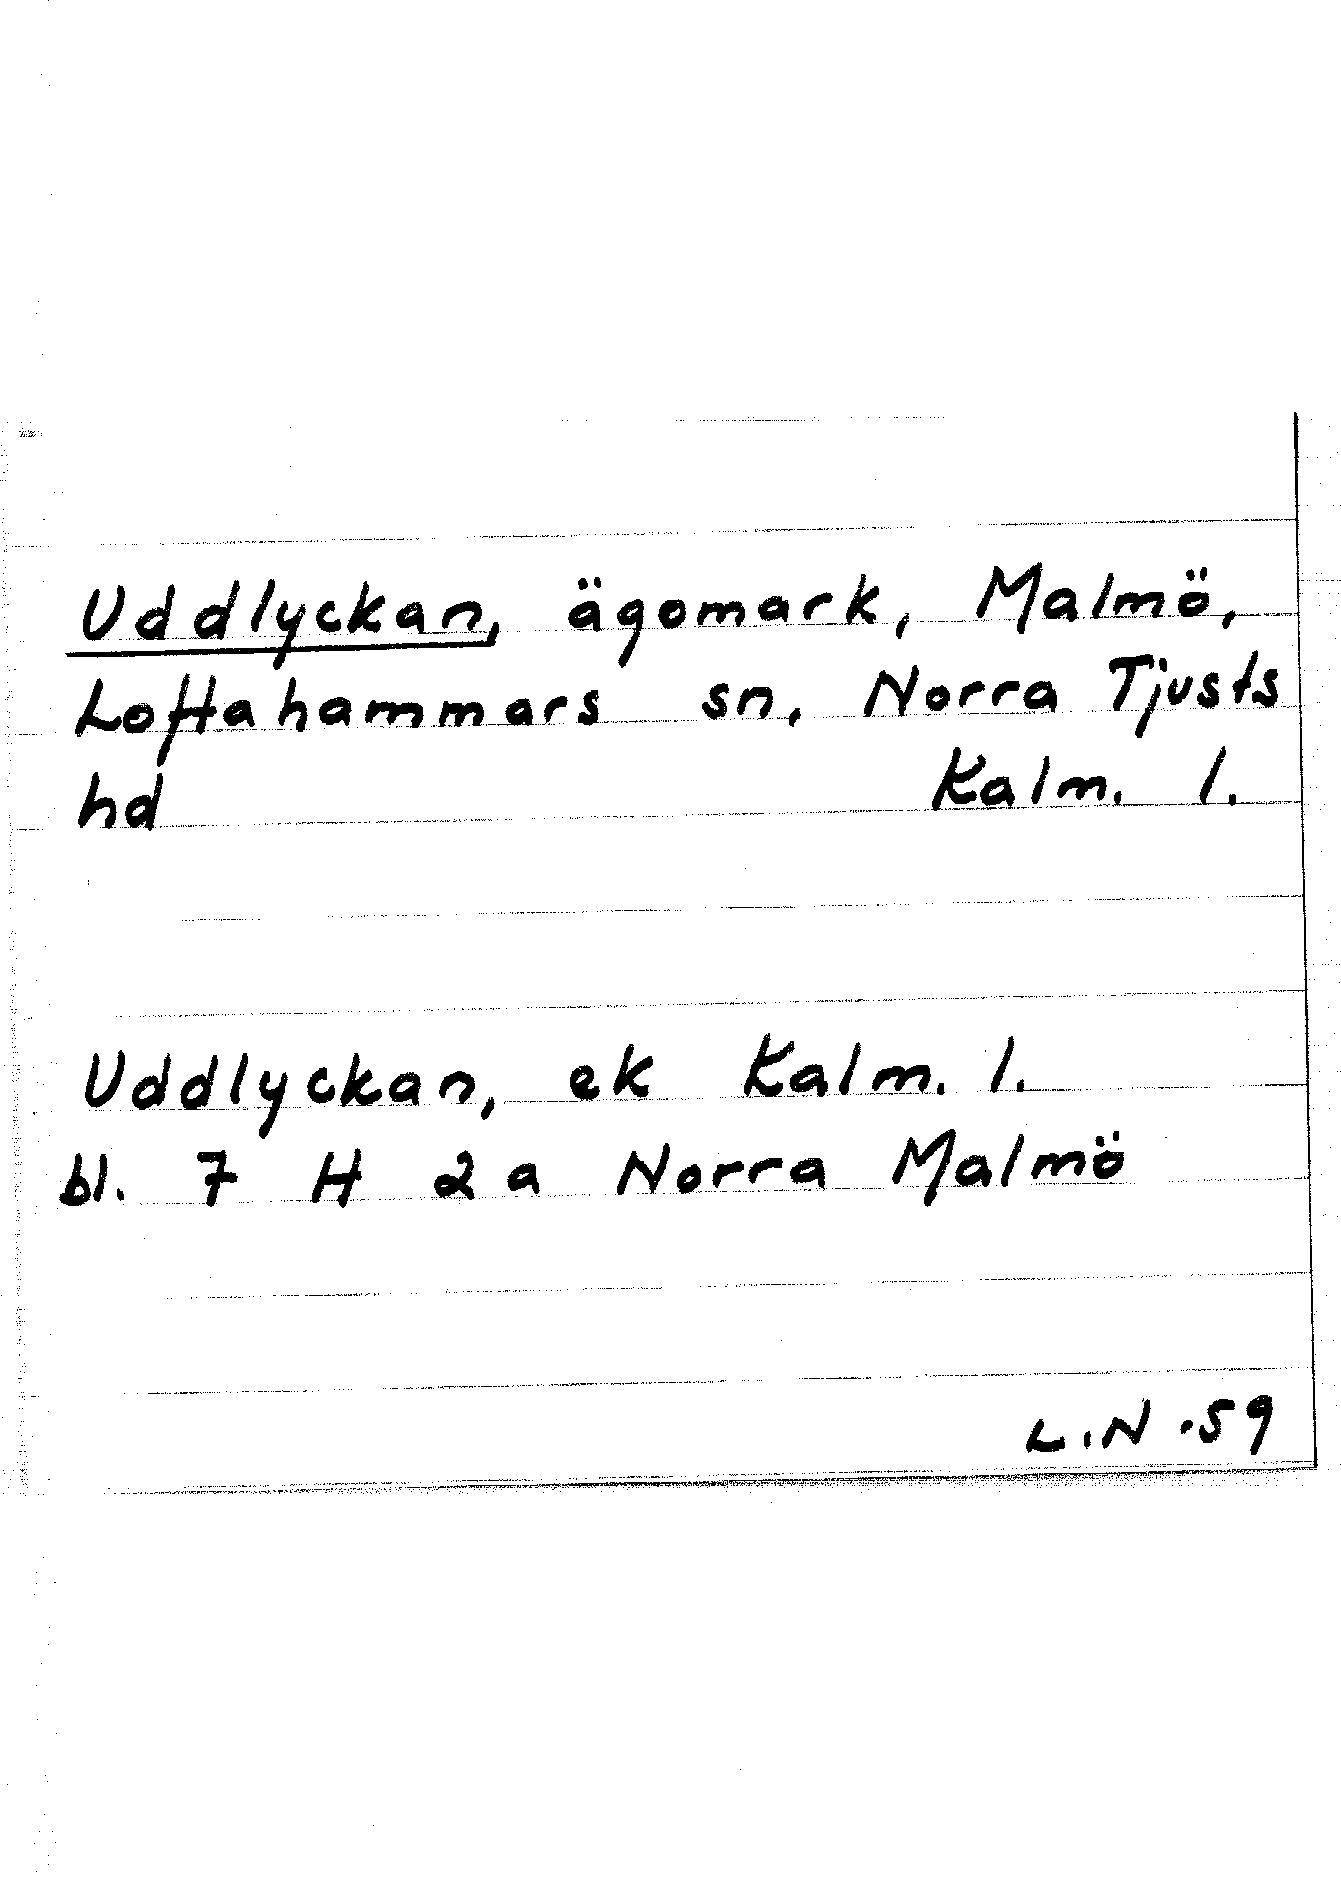 Uddlyckan, ägomark, Malmö,
Loftahammars sn, Norra Tjusts
hd Kalm. l.
Uddlyckan, ek Kalm. l.
bl. 7 H 2a Norra Malmö
L.N .59